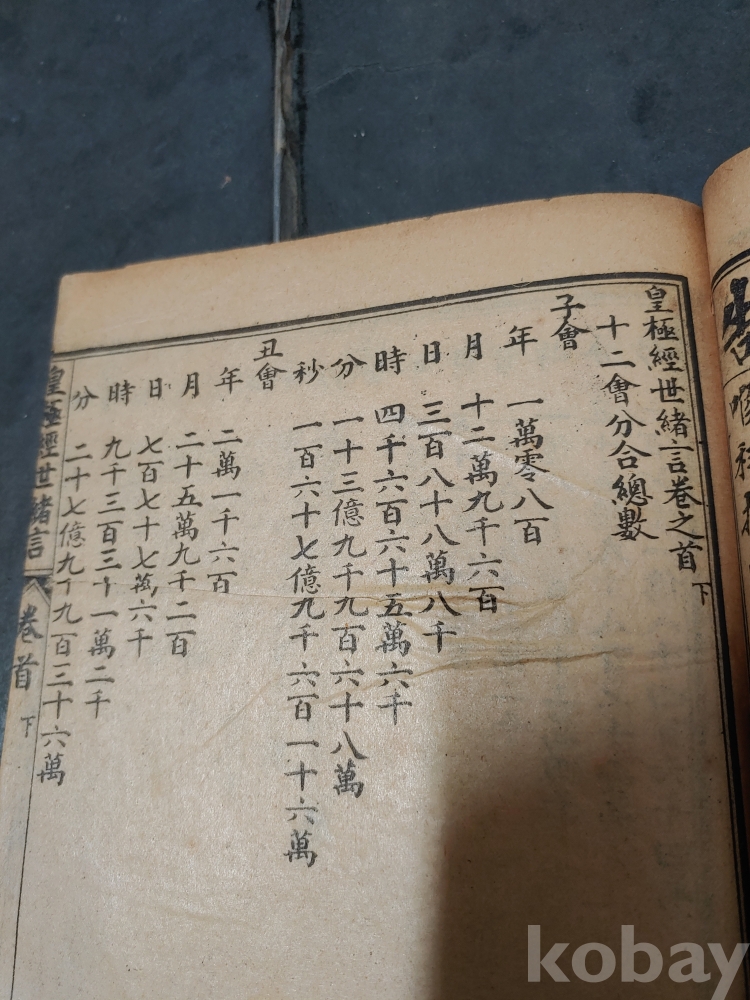 皇極經世緒言卷之首 下
十二會分合總數
子會
年 一萬零八百
月 十二萬九千六百
日 三百八十八萬八千
時 四千六百六十五萬六千
分 一十三億九千九百六十八萬
秒 一百六十七億九千六百一十六萬
丑會
年 二萬一千六百
月 二十五萬九千二百
日 七百七十七萬六千
時 九千三百三十一萬二千
分 二十七億九千九百三十六萬
皇極經世緒言 卷首 下
kobay